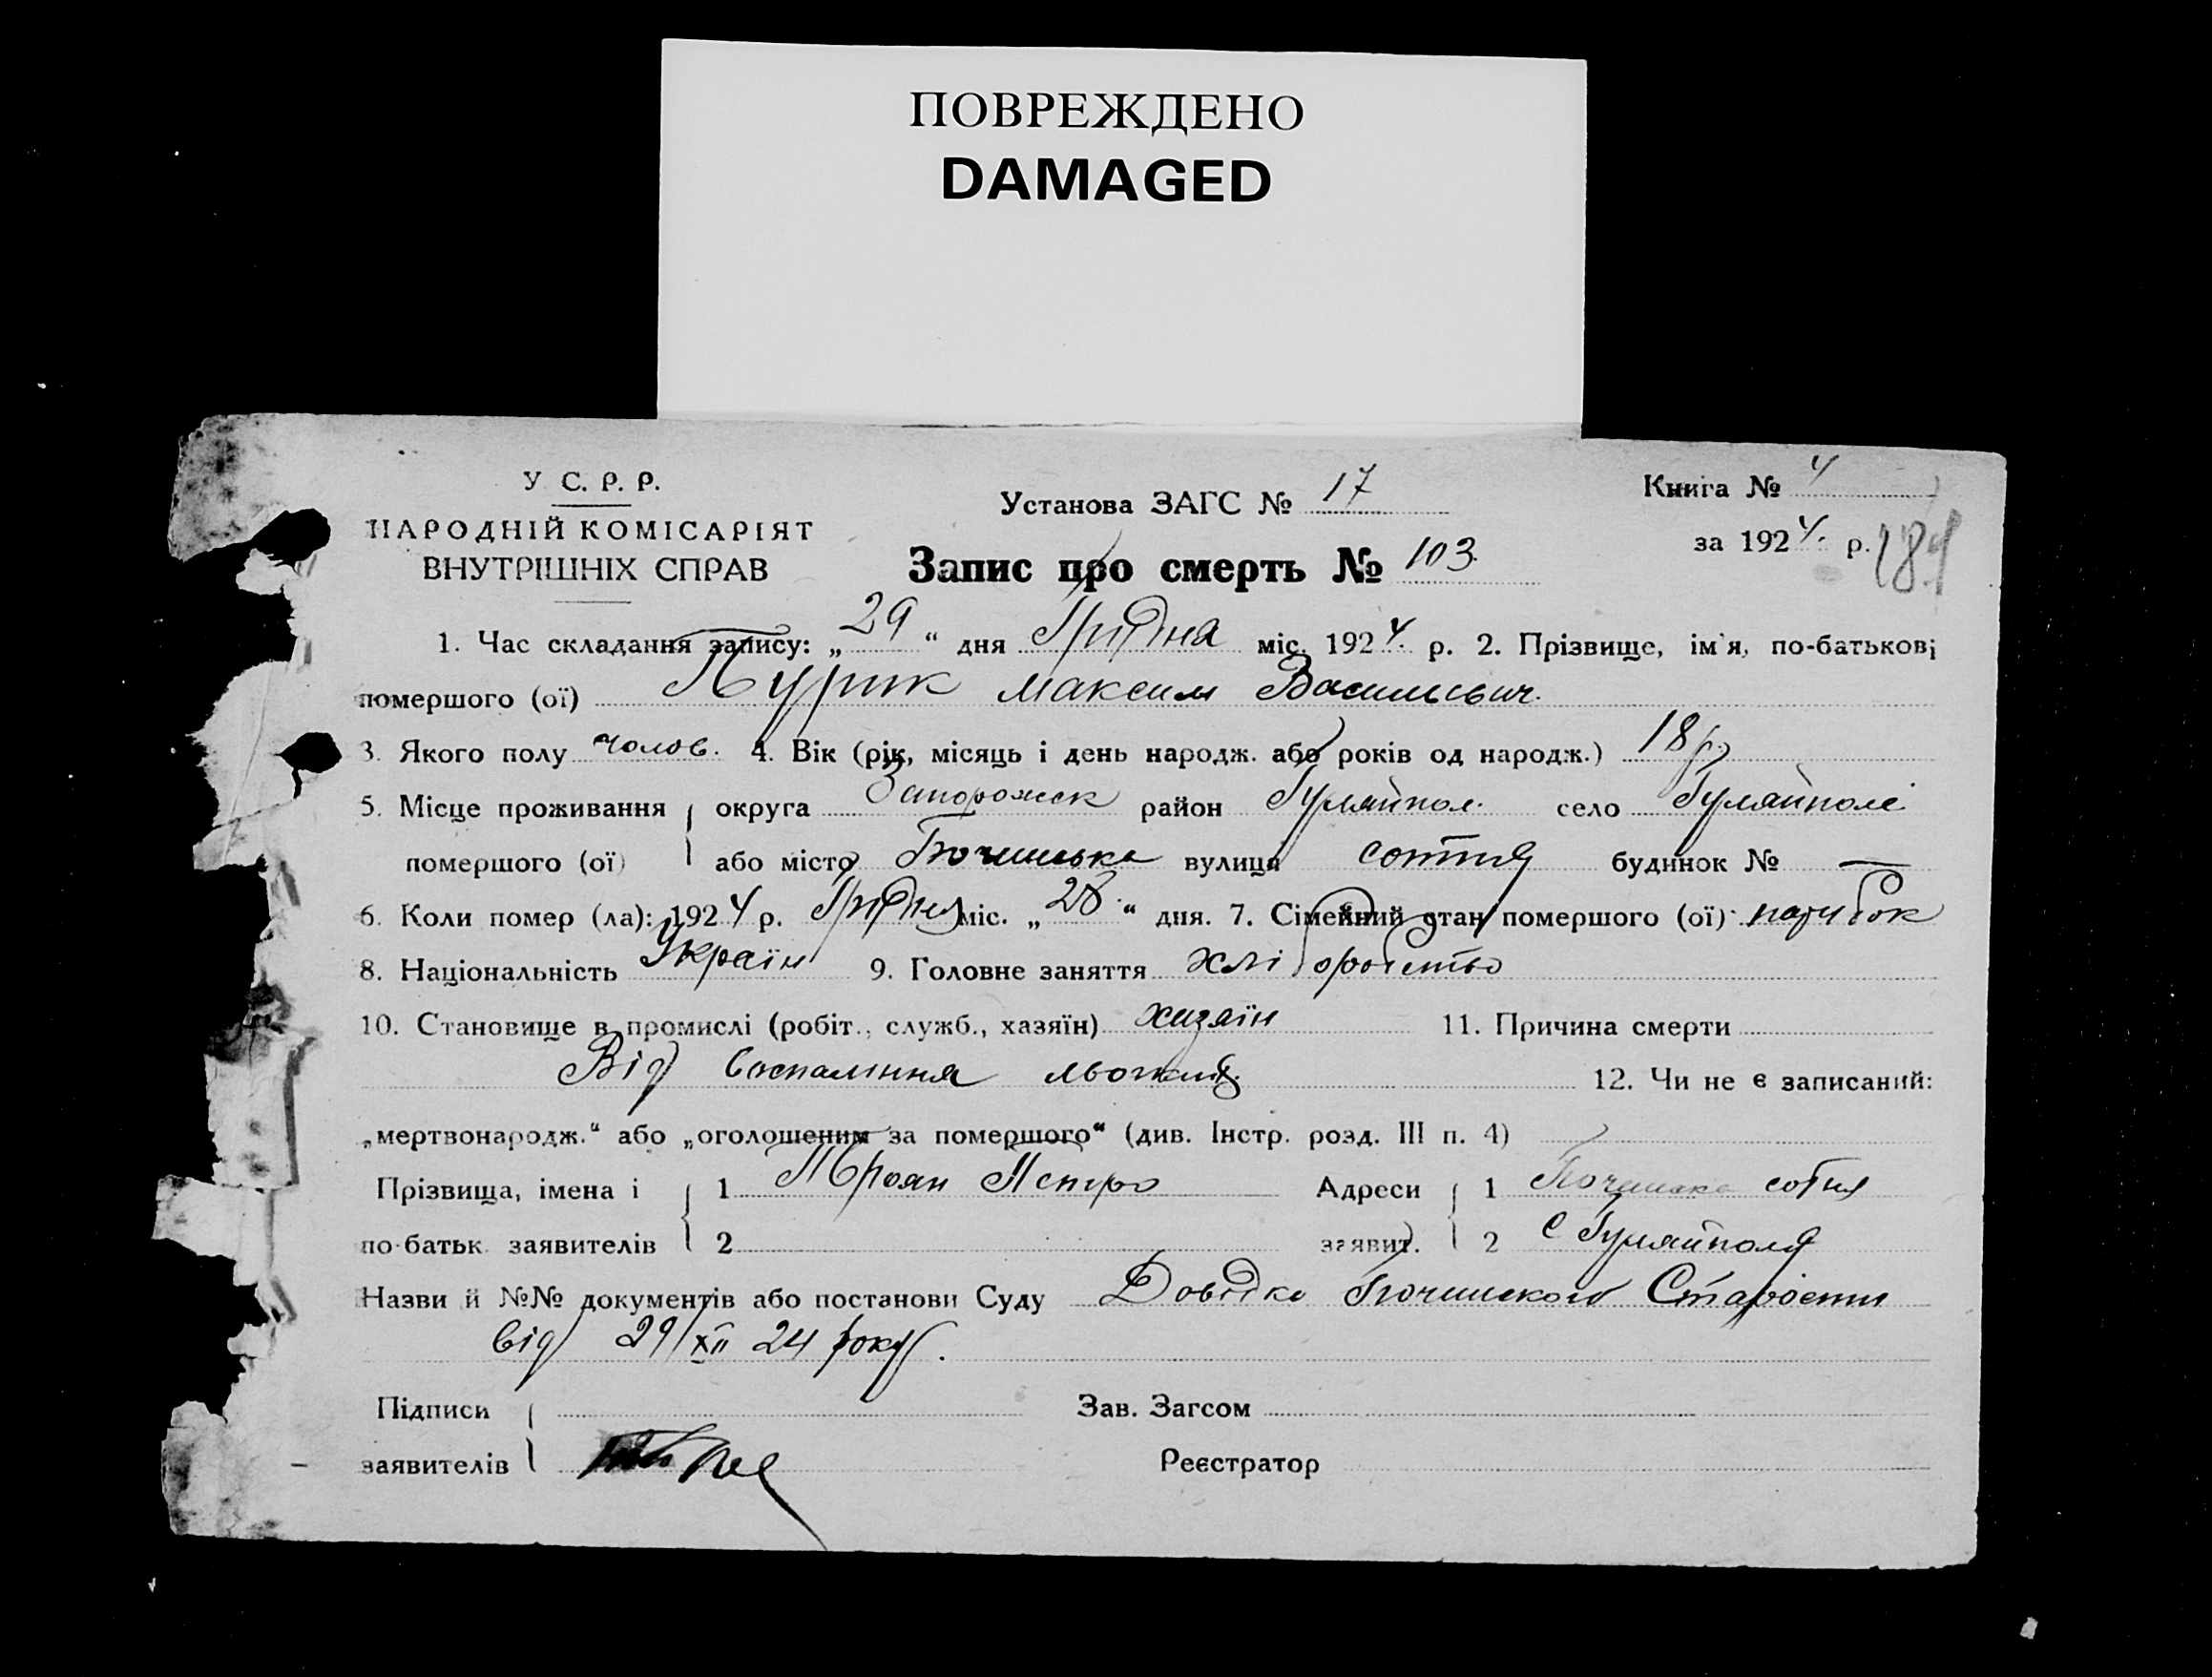 ПОВРЕЖДЕНО
DAMAGED
У С. Р. Р.
НАРОДНІЙ КОМІСАРІЯТ
ВНУТРІШНІХ СПРАВ
Установа ЗАГС № 17
Книга № 4
за 1924. р.
184
Запис про смерть № 103.
1. Час складання запису: „29“ дня Грудня міс. 1924. р. 2. Прізвище, ім'я, по-батькові
помершого (ої) Пурик Максим Васильевич.
3. Якого полу чолов. 4. Вік (рік, місяць і день народж. або років од народж.) 18 р.
5. Місце проживання округа Запорожск район Гуляйпол. село Гуляйполе
помершого (ої) або місто вулиця сотня будинок № —
6. Коли помер (ла): 1924 р. Грудня міс. „28“ дня. 7. Сімейний стан помершого (ої) парубок
8. Національність Україн 9. Головне заняття хліборобство
10. Становище в промислі (робіт., служб., хазяїн) хазяїн 11. Причина смерти
Від воспаління льогких. 12. Чи не є записаний:
„мертвонародж.“ або „оголошеним за помершого“ (див. Інстр. розд. III п. 4)
Прізвища, імена і 1 Троян Петро Адреси 1 сотня
по-батьк. заявителів 2 заявит. 2 с Гуляйполя
Назви й №№ документів або постанови Суду Довідка Старости
від 29/XII 24 року.
Підписи Зав. Загсом
заявителів Реєстратор